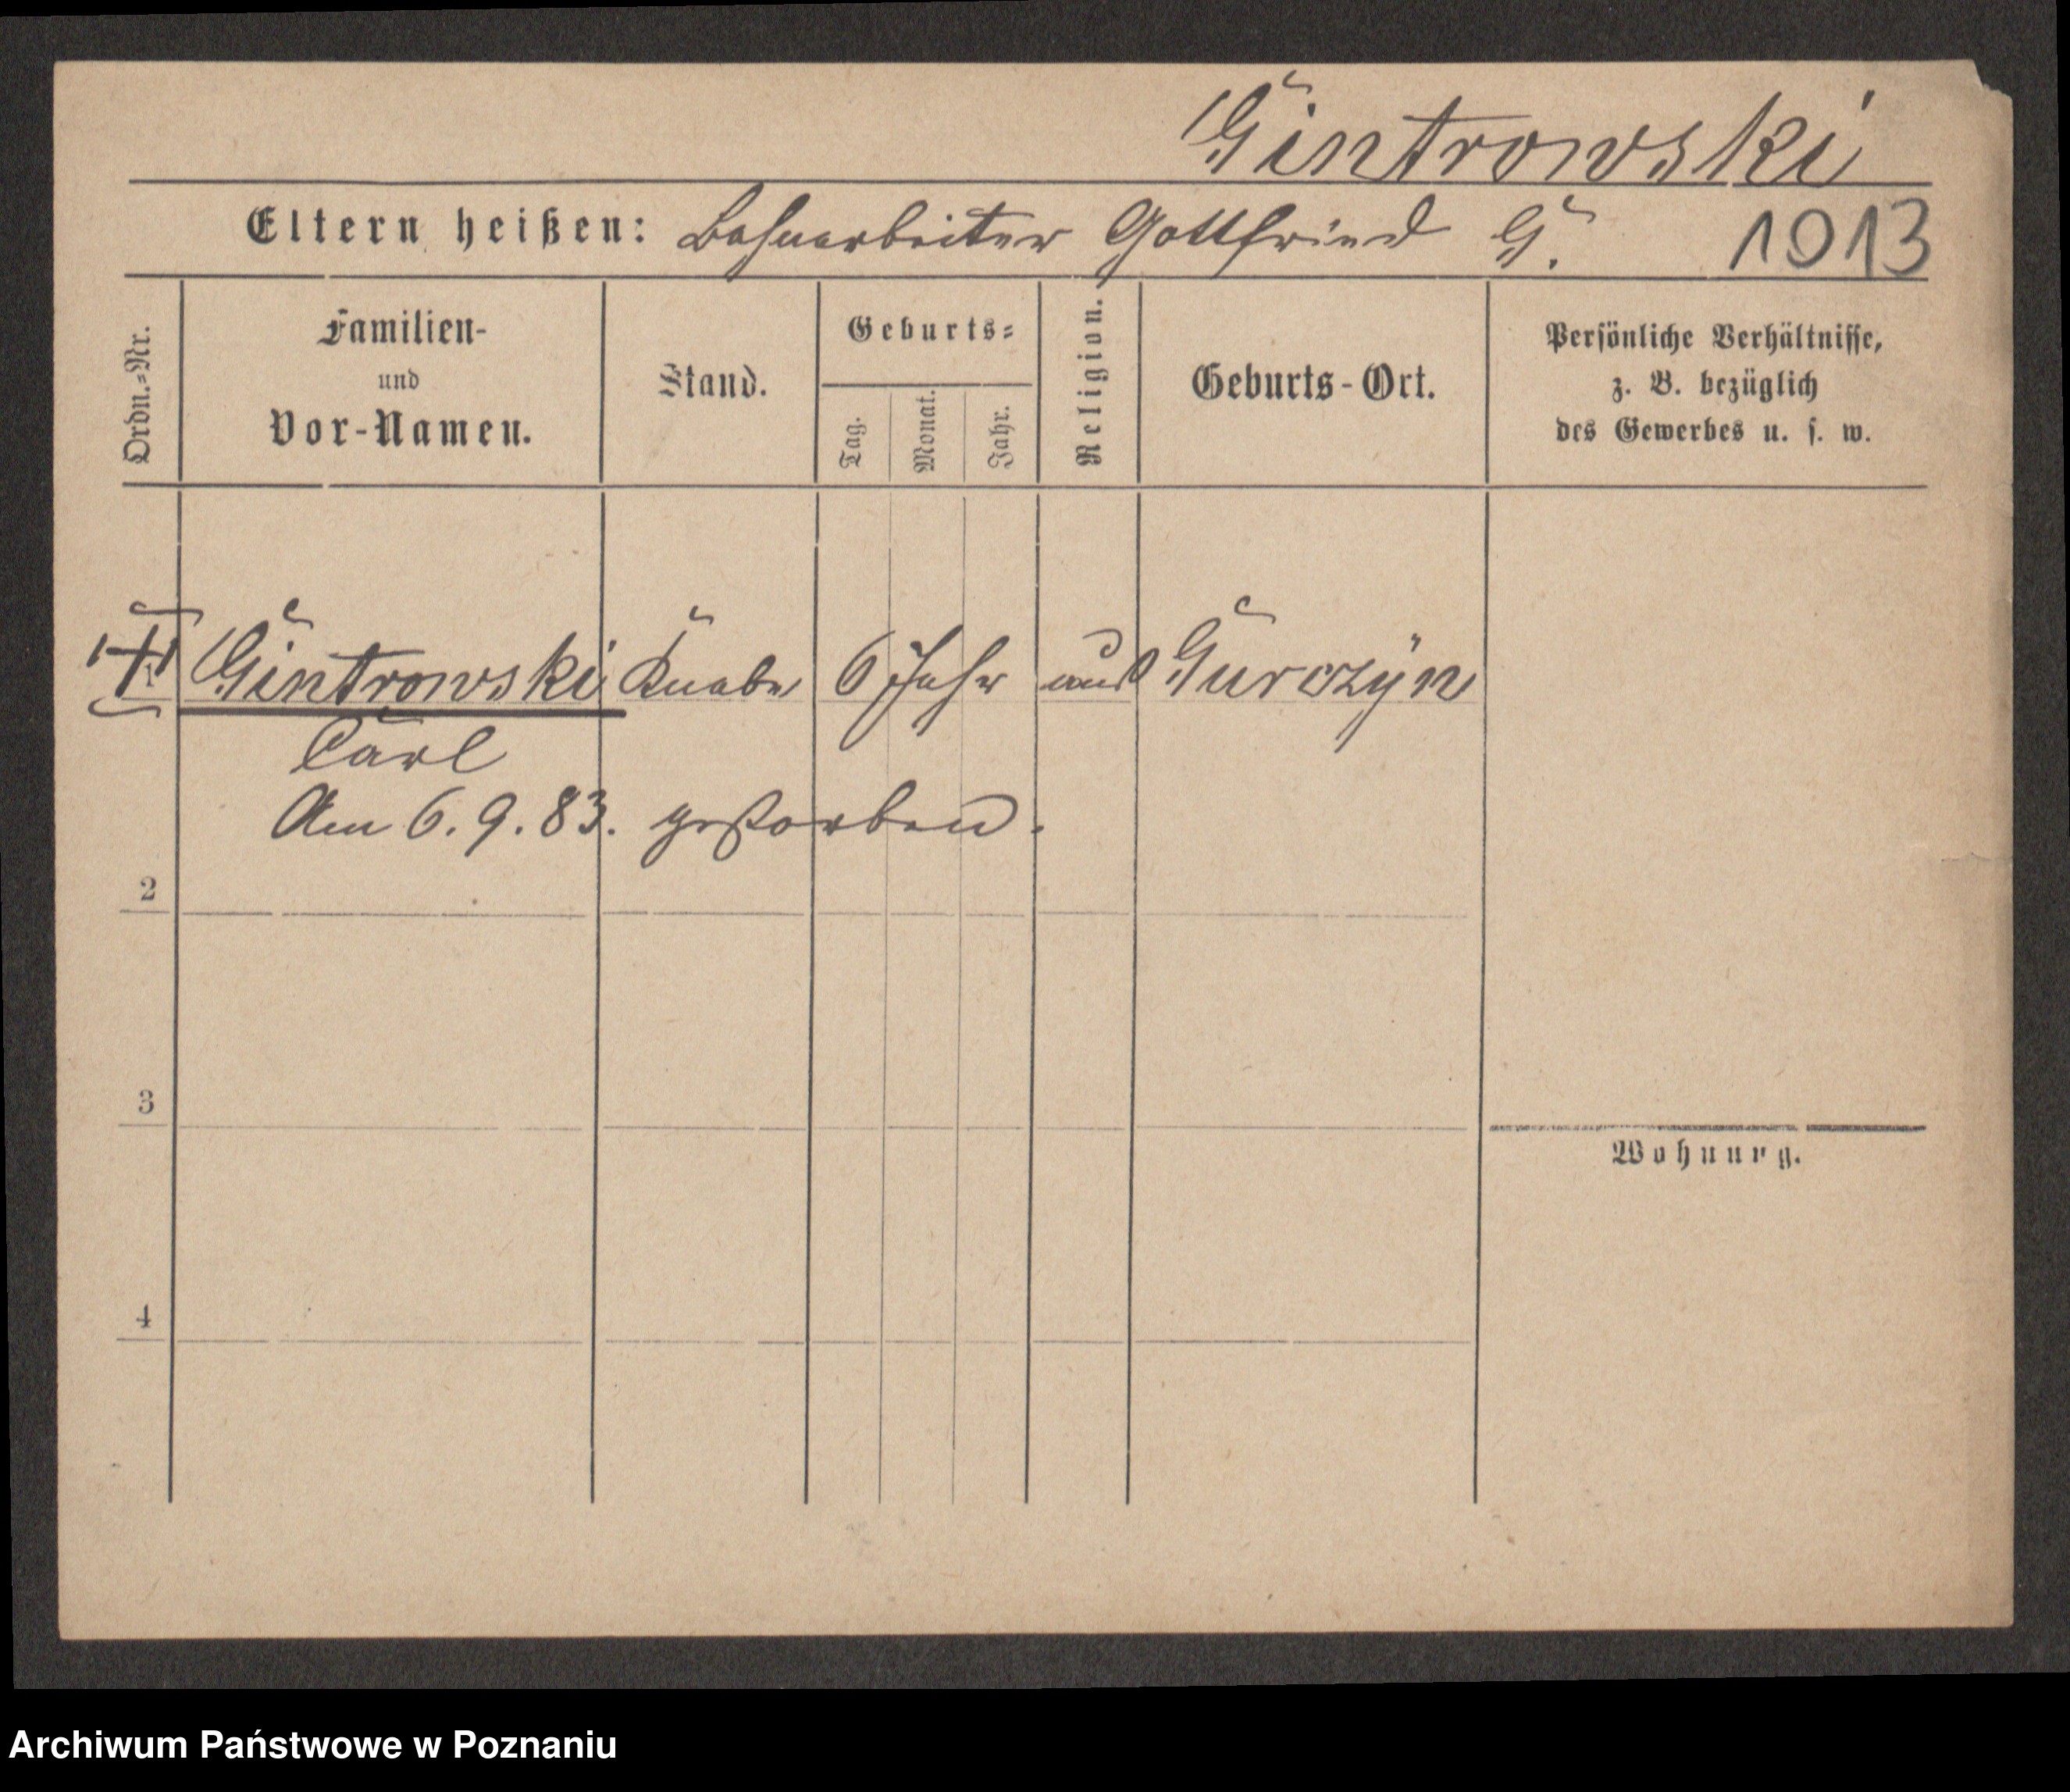 Gintrowski
Eltern heißen: Bahnarbeiter Gottfried G. 1913
Ordn.=Nr.
Familien-
und
Vor-Namen.
Stand.
Geburts=
Tag.
Monat.
Jahr.
Religion.
Geburts-Ort.
Persönliche Verhältnisse,
z. B. bezüglich
des Gewerbes u. s. w.
Gintrowski Knabe 6 Jahr aus Gurczyn
Carl
Am 6. 9. 83. gestorben.
2
3
Wohnung.
4
Archiwum Państwowe w Poznaniu